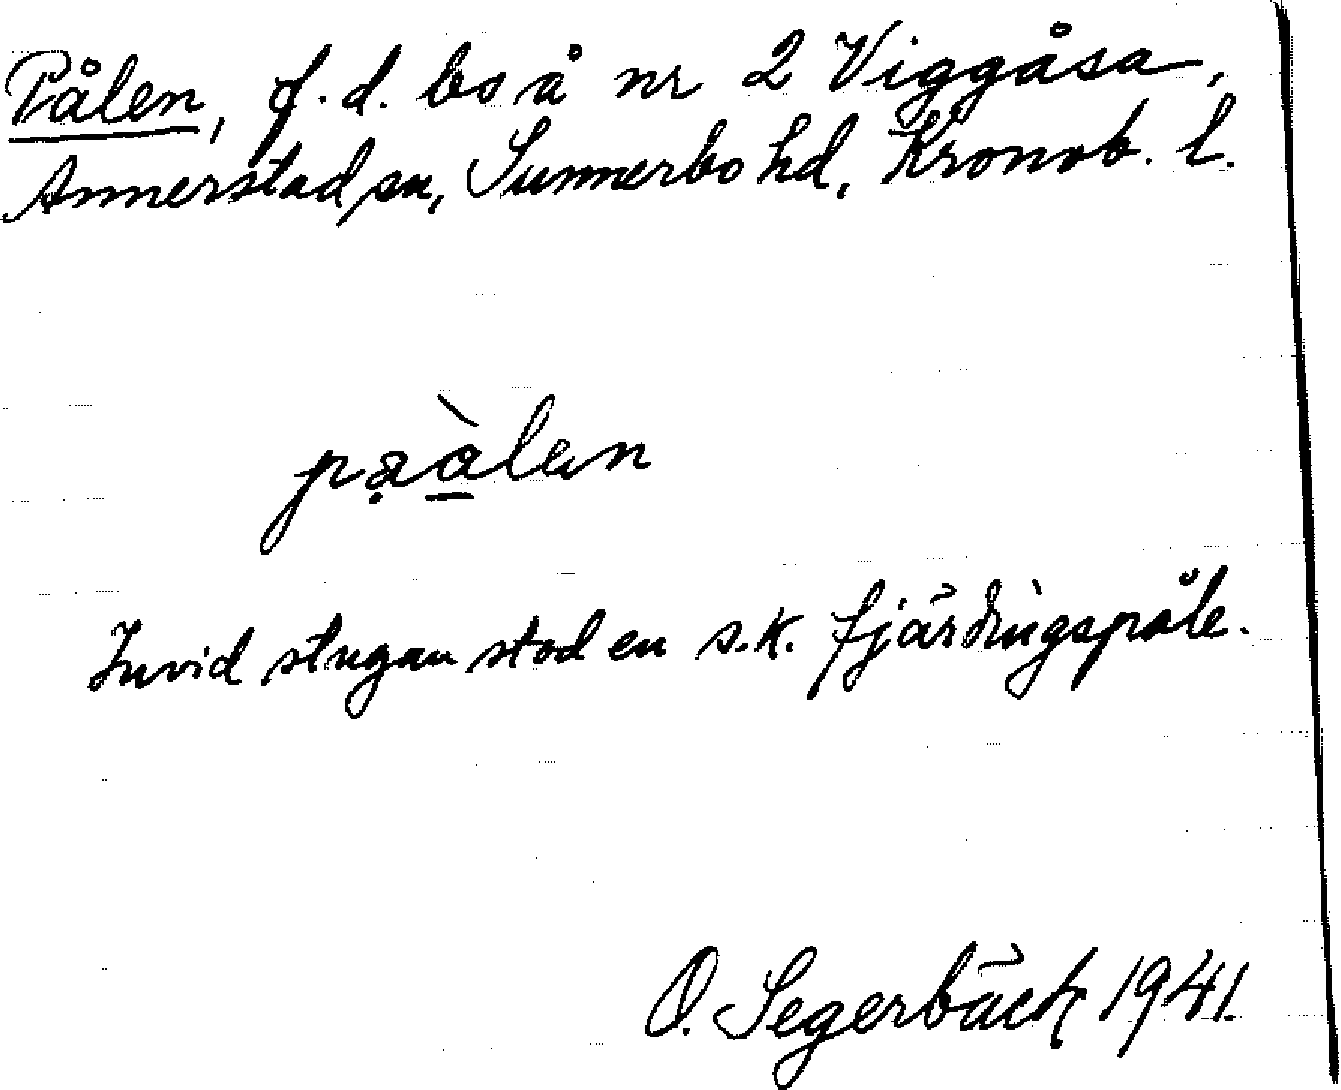 Pålen, f. d. bo å nr 2 Viggåsa,
Annerstad sn, Sunnerbo hd, Kronob. l.
pạà̲lan
Invid stugan stod en s.k. fjärdingspåle.
O. Segerbäck 1941.